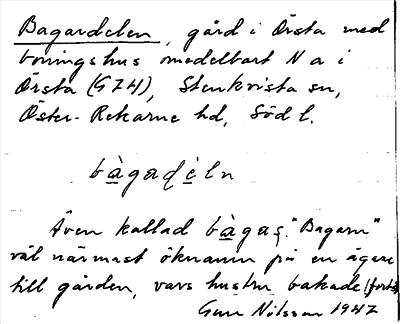 Bagardelen, gård i Örsta med
boningshus omedelbart N a i
Örsta (GZH), Stenkvista sn,
Öster-Rekarne hd, Södl.
bàgadèln
Även kallad bàgaṣ. "Bagarn"
väl närmast öknamn på en ägare
till gården, vars hustru bakade (forts
Gun Nilsson 1947